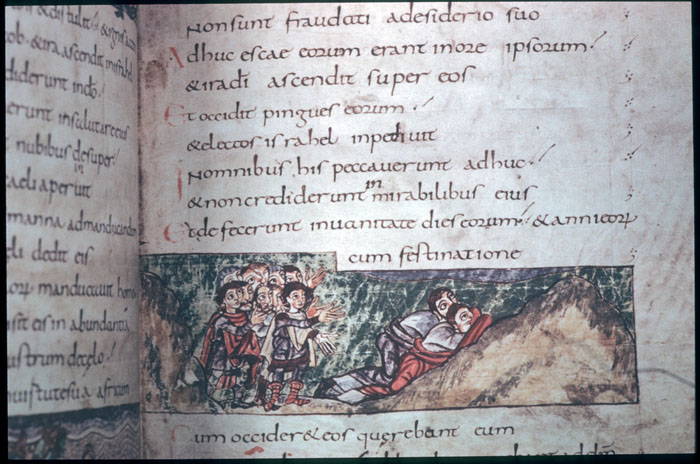 & distulit & ignis
cob· & ira ascendit inisrahel
diderunt indō·
erunt insalutare eius
nubibus desuper·
aeli aperuit
manna admanducandum
eli dedit eis
manducauit homo
isit eis in abundantia
ustrum decelo·
uirtute sua africum
Nonsunt fraudati adesiderio suo
Adhuc escae eorum erant inore ipsorum·
& iradī ascendit super eos
Et occidit pingues eorum·
& electos israhel inpediuit
Inomnibus his peccauerunt adhuc·
& noncrediderunt in mirabilibus eius
Et defecerunt inuanitate dies eorum· & annieorꝝ
cum festinatione
Cum occider& eos querebant eum